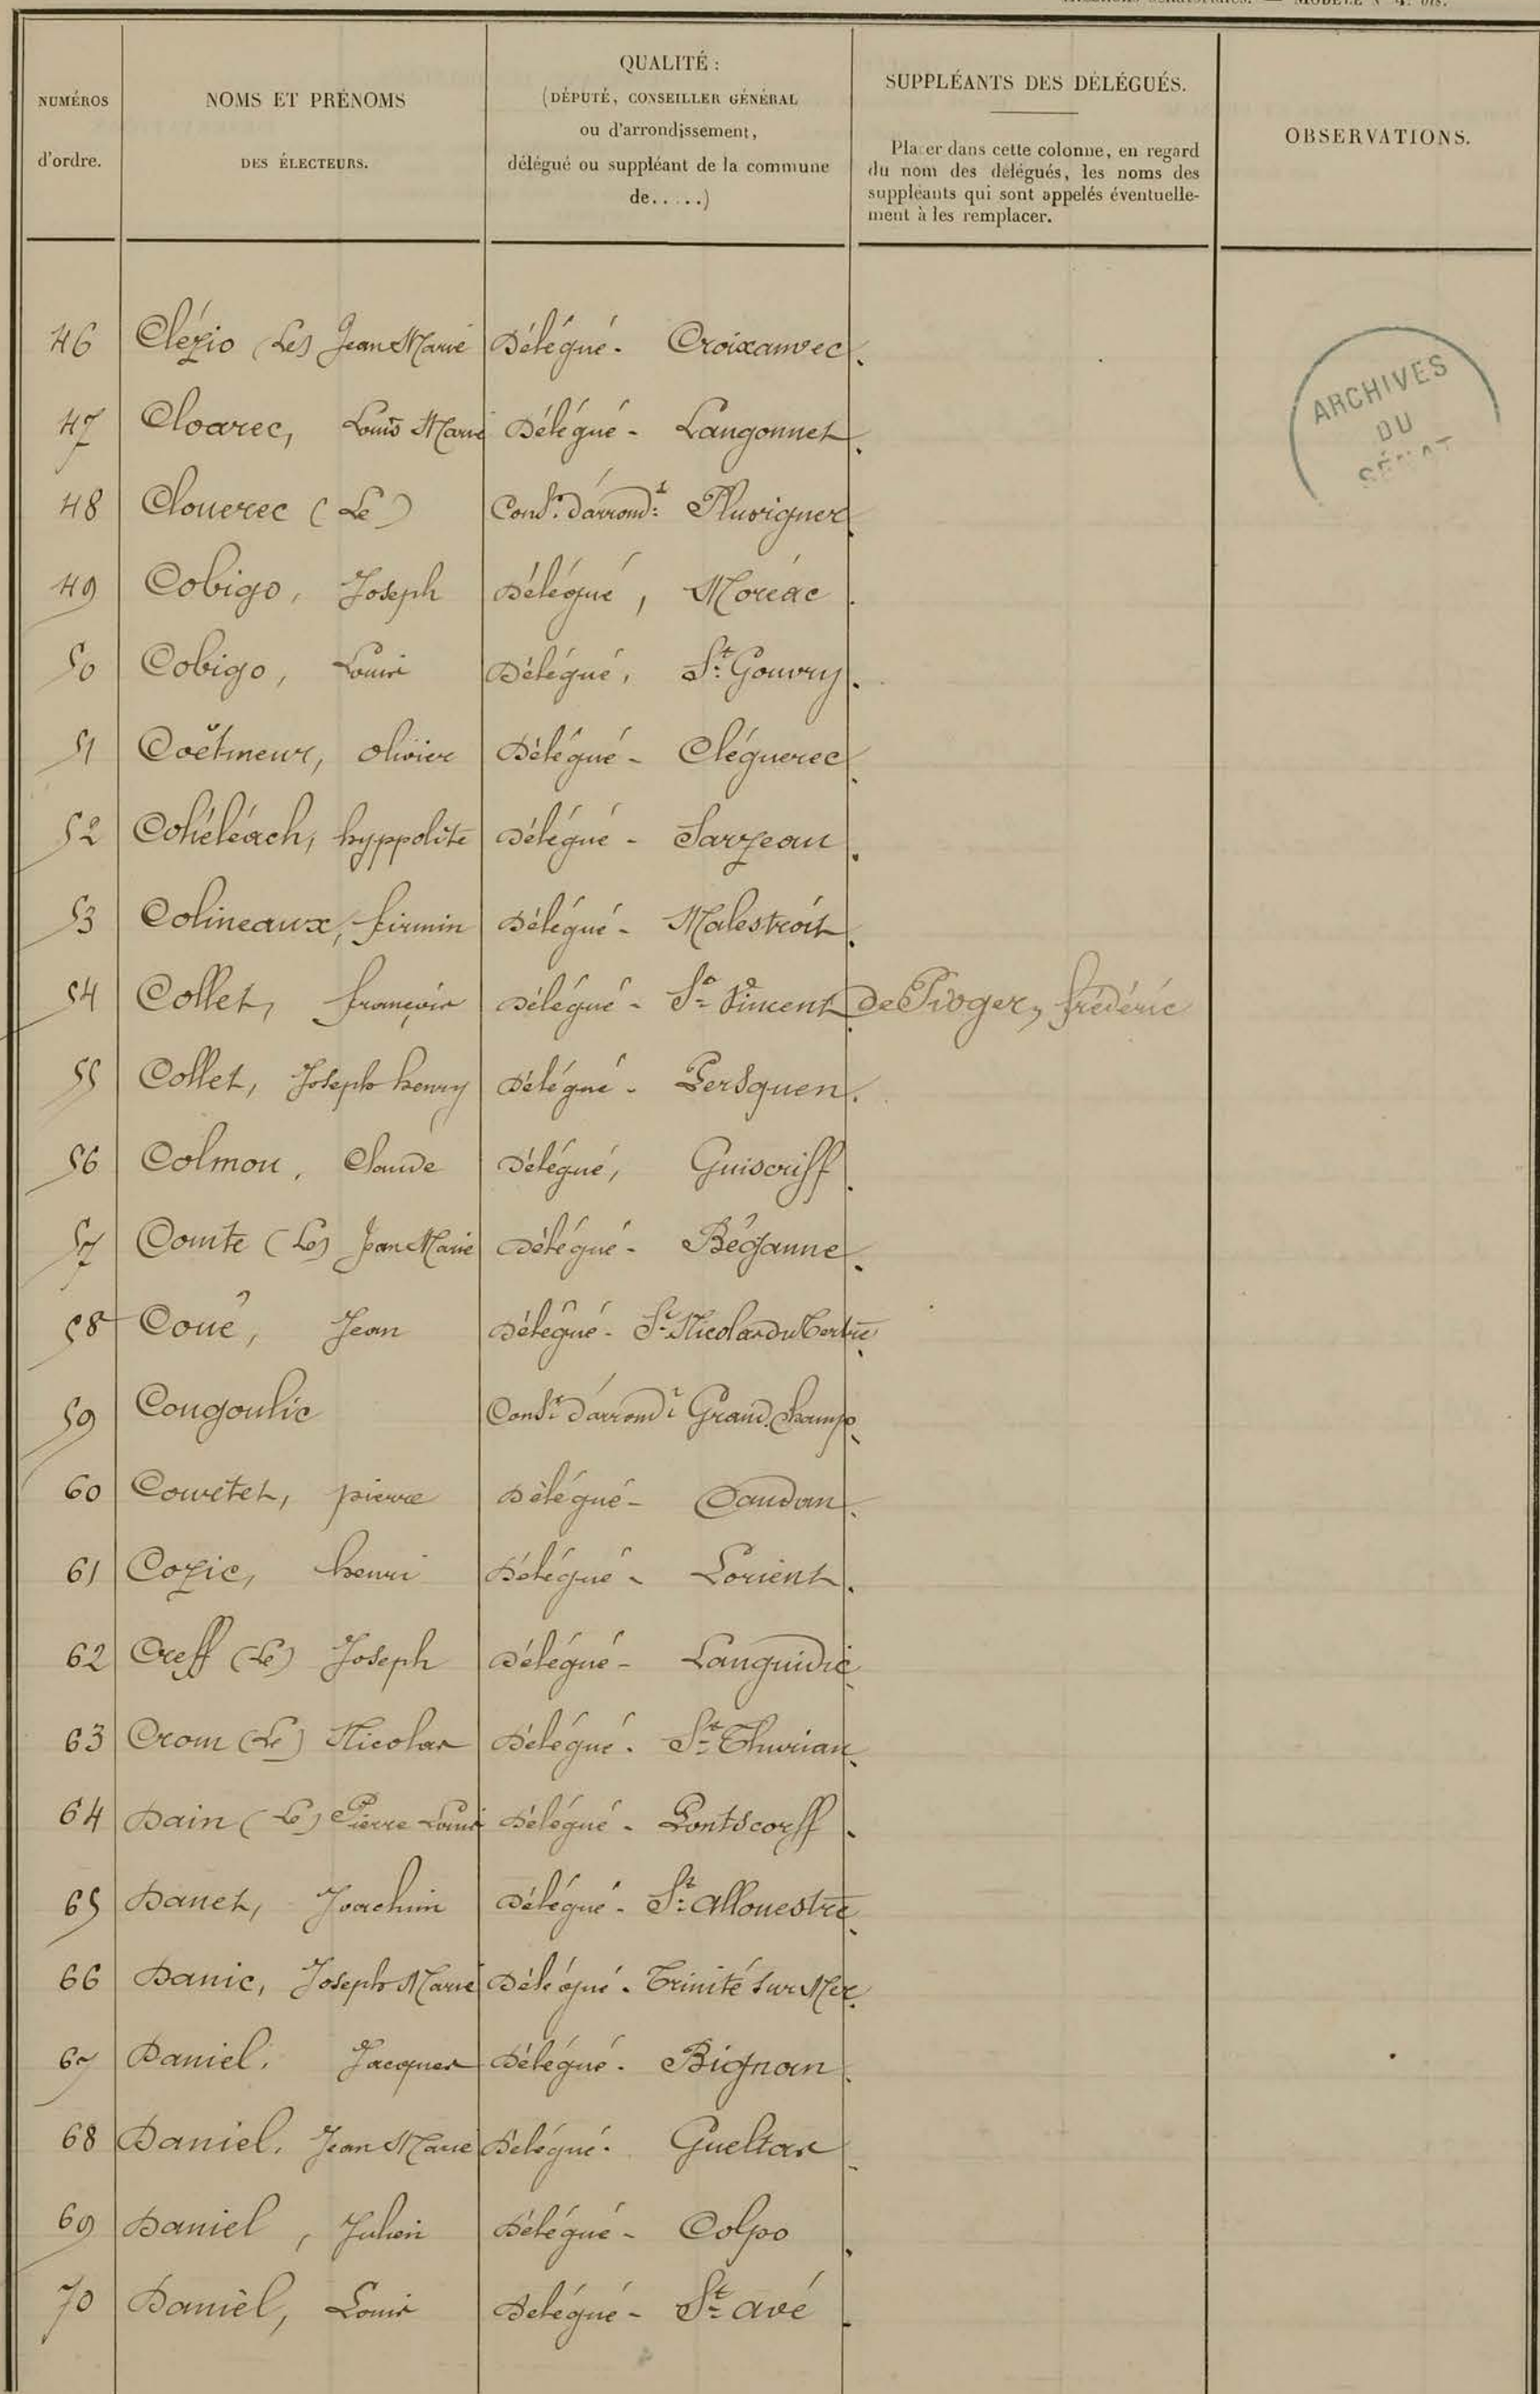 MODÈLE N° 4 bis.
NUMÉROS d'ordre.
NOMS ET PRÉNOMS
DES ÉLECTEURS.
QUALITÉ :
(DÉPUTÉ, CONSEILLER GÉNÉRAL
ou d'arrondissement,
délégué ou suppléant de la commune
de.....)
SUPPLÉANTS DES DÉLÉGUÉS.
Placer dans cette colonne, en regard
du nom des délégués, les noms des
suppléants qui sont appelés éventuelle-
ment à les remplacer.
OBSERVATIONS.
ARCHIVES
DU
SÉNAT
46 Clézio (Le) Jean Marie Délégué. Croixanvec.
47 Cloarec, Louis Marie Délégué - Langonnet.
48 Clouerec (Le) Cons.r d'arrond.t Pluvigner.
49 Cobigo, Joseph Délégué, Moréac.
50 Cobigo, Louis Délégué, St. Gouvry.
51 Coëtmeur, olivier Délégué - Cléguerec.
52 Cohéléach, hyppolite Délégué - Sarzeau.
53 Colineaux, firmin Délégué - Malestroit.
54 Collet, françois Délégué - St. Vincent de Pioger, frédéric
55 Collet, Joseph henry Délégué - Persquen.
56 Colmou, Claude Délégué, Guiscriff.
57 Comte (Le) Jean Marie Délégué - Béganne.
58 Coué, Jean Délégué - St. Nicolas du Tertre.
59 Cougoulic Cons.r d'arrond.t Grand. Champ.
60 Courtet, pierre Délégué - Caudan.
61 Cozic, henri Délégué - Lorient.
62 Creff (Le) Joseph Délégué - Languidic.
63 Crom (Le) Nicolas Délégué. St. Thurian.
64 Dain (Le) Pierre Louis Délégué - Pontscorff.
65 Danet, Joachim Délégué - St. allouestre.
66 Danic, Joseph Marie Délégué. Trinité sur Mer.
67 Daniel, Jacques Délégué. Bignan.
68 Daniel, Jean Marie Délégué. Gueltas.
69 Daniel, Julien Délégué - Colpo.
70 Daniel, Louis Délégué - St. avé.